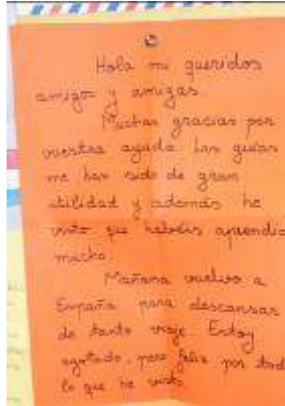 Hola mi queridos
amigos y amigas
Muchas gracias por
vuestra ayuda. Las guías
me han sido de gran
utilidad y además he
visto que habéis aprendid
mucho.
Mañana vuelvo a
España para descansar
de tanto viaje. Estoy
agotado, pero feliz por tod
lo que he visto.